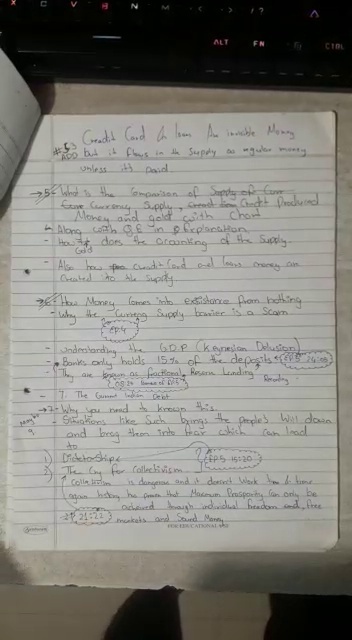 ALT FN CTRL
Credit Card & loan An invisible Money
#53 ADD but it flows in the Supply as regular money
unless it's paid
5- What is the Comparison of
Currency Supply, Credit Produced
Money and gold with chart
Along with Q.E in explanation
- How does the of the Supply.
Gold
- Also how credit Card and loans money are
created to the Supply.
How Money comes into existance from nothing
- Why the Currency Supply is a Scam
EP.4
- Understanding the G.D.P (Keynesian Delusion)
- Banks only holds 15% of the deposits EP.5 24:03
They are known as fractional Reserve Lending
Reading
- 7. The Current Indian Debt
7- Why you need to know this
- Situations like Such brings the people's Will down
and brag them into which can lead
to
1) Dictatorships
2) The Cry for Collectivism
EP.5 15:20
Collectivism is dangerous and it doesn't Work time & time
again history has prove that Maximum Prosperity can only be
achieved through individual freedom and, free
markets and Sound Money
21:22
FOR EDUCATIONAL USE